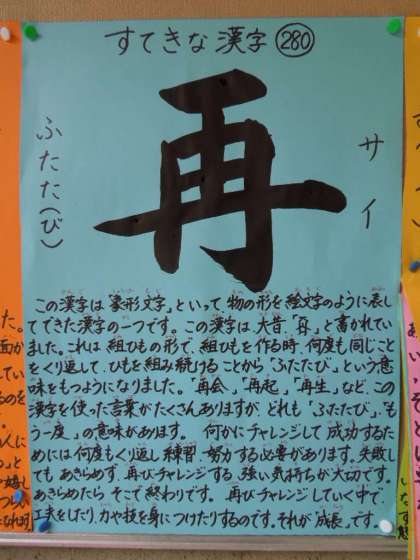 すてきな漢字 280
再
サイ
ふたた(び)
この漢字は「象形文字」といって物の形を絵文字のように表し
てできた漢字の一つです。この漢字は、大昔、「
」と書かれてい
ました。これは組ひもの形で、組ひもを作る時、何度も同じこと
をくり返して、ひもを組み続けることから「ふたたび」という意
味をもつようになりました。「再会」、「再起」、「再生」など、この
漢字を使った言葉がたくさんありますが、どれも「ふたたび」、「も
う一度」の意味があります。 何かにチャレンジして成功するた
めには何度もくり返し練習、努力する必要があります。失敗し
てもあきらめず、再びチャレンジする、強い気持ちが大切です。
あきらめたらそこで終わりです。 再びチャレンジしていく中で、
工夫をしたり、力や技を身につけたりするのです。それが「成長」です。